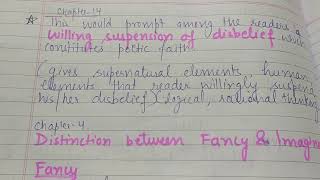 Chapter-14
This would prompt among the readers a
willing suspension of disbelief which
constitutes poetic faith
(gives supernatural elements, human
elements that reader willingly suspend
his/her disbelief) logical, rational thinking
Chapter-4
Distinction between Fancy & Imagin
Fancy